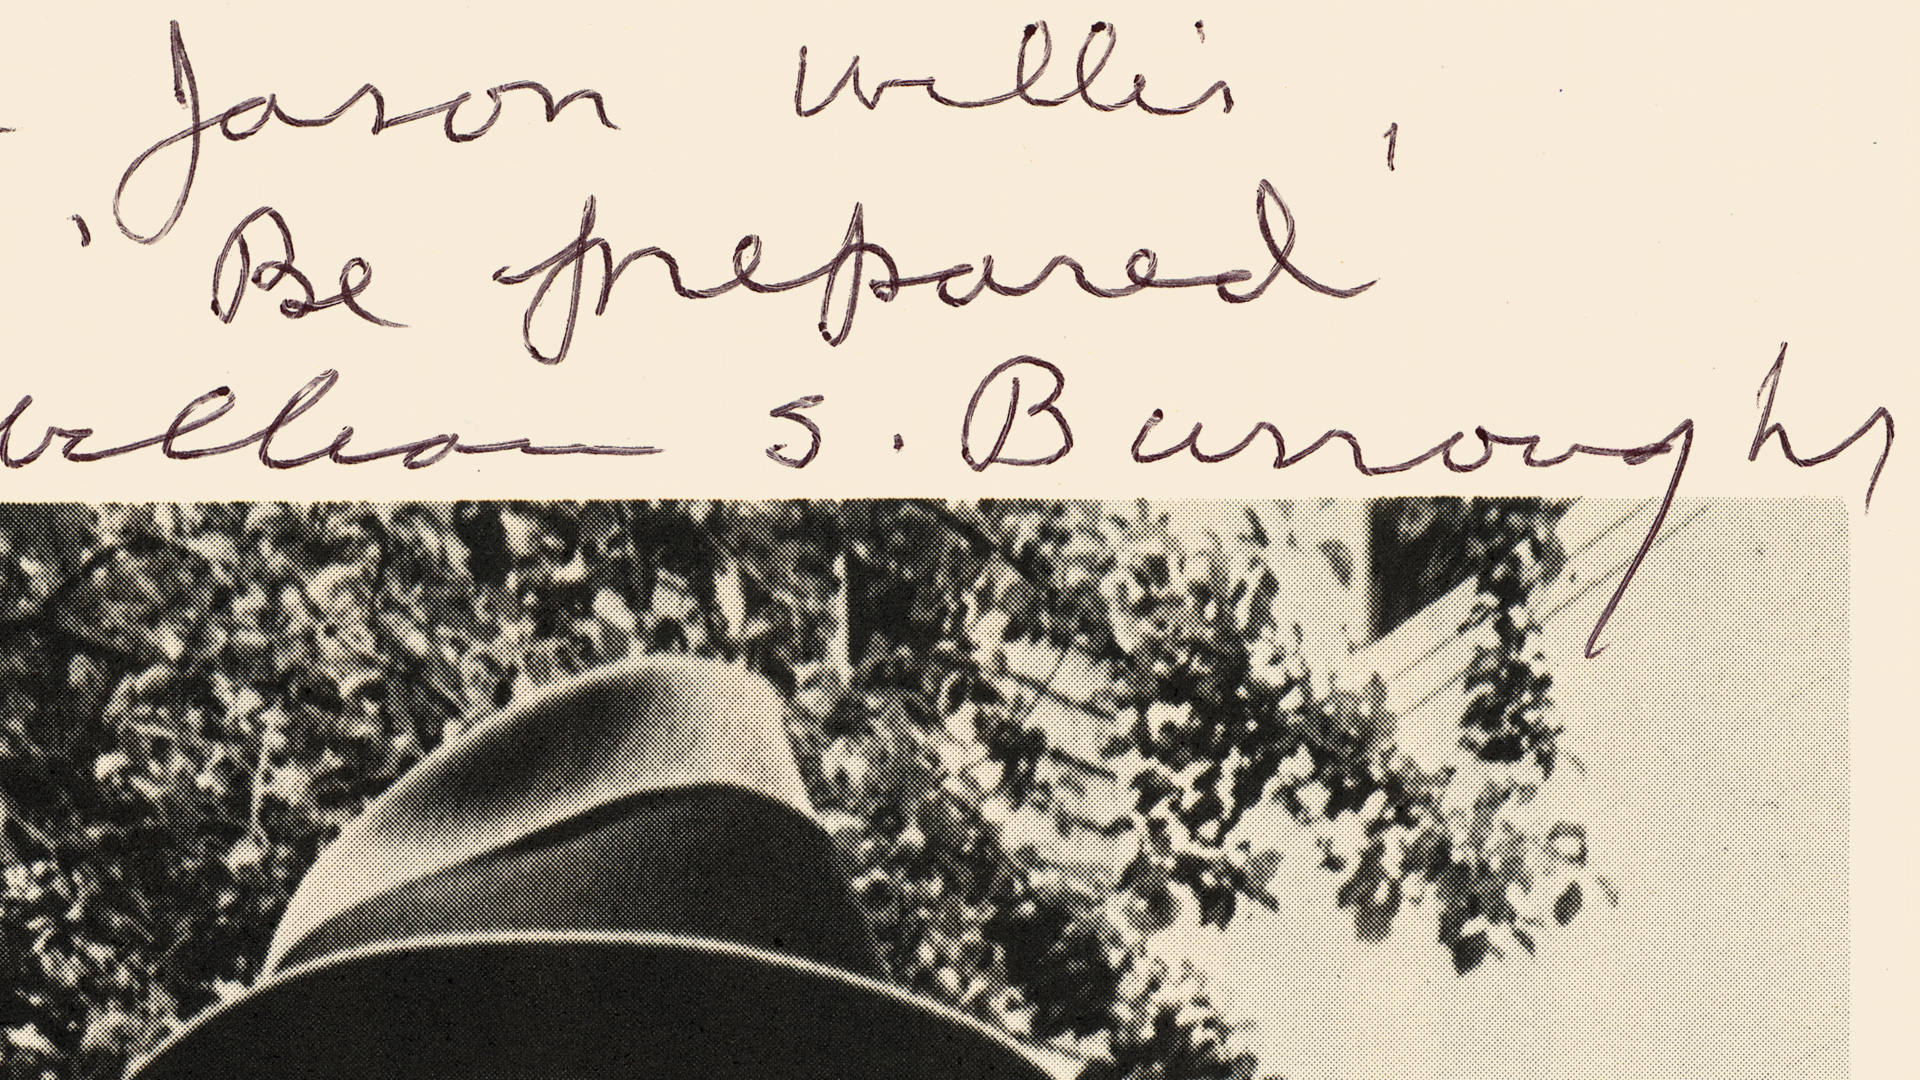 Jason Willis
'Be prepared'
William S. Burroughs